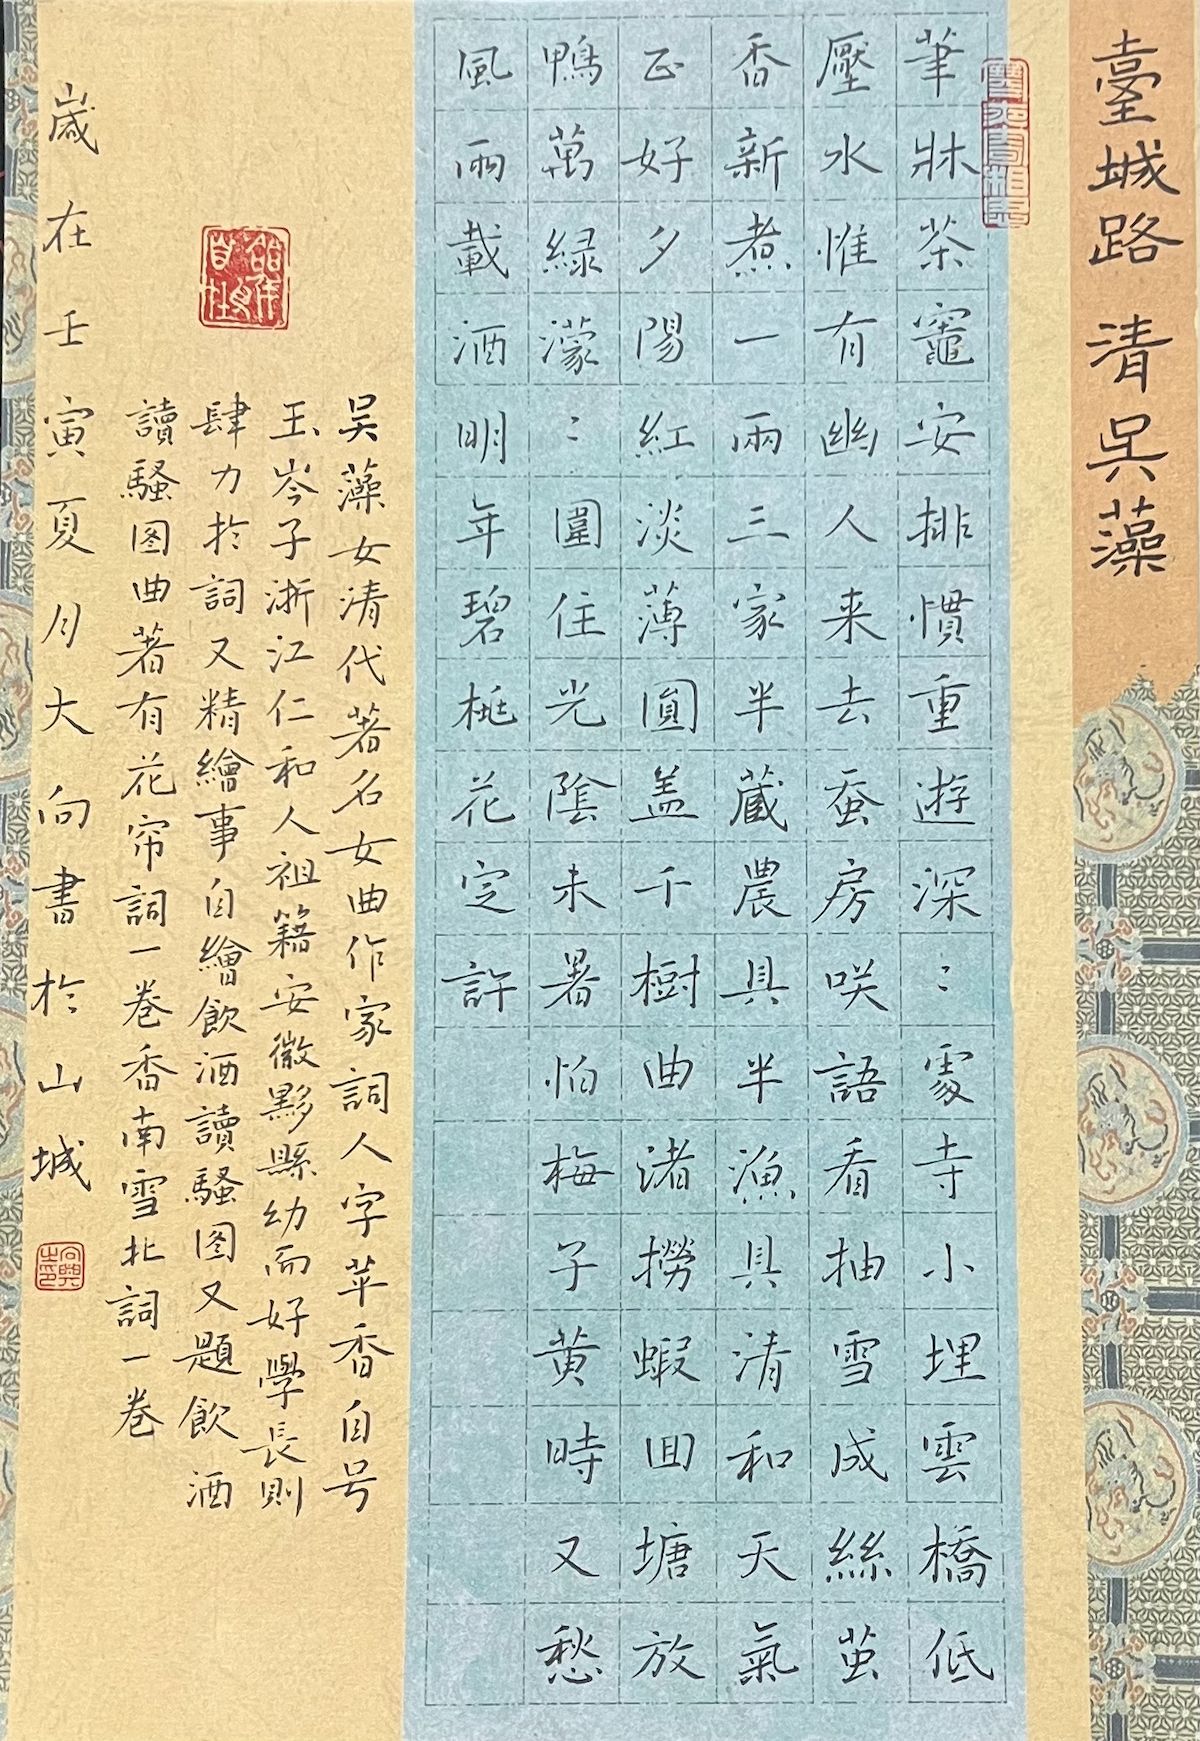 臺城路 清吳藻
筆牀茶竈安排慣重遊深〻處寺小埋雲橋低
壓水惟有幽人来去蚕房咲語看抽雪成絲茧
香新煮一兩三家半藏農具半漁具清和天氣
正好夕陽紅淡薄圓盖千樹曲渚撈蝦回塘放
鴨萬緑濛〻圍住光陰未暑怕梅子黄時又愁
風雨載酒明年碧桃花定許
吴藻女清代著名女曲作家詞人字苹香自号
玉岑子浙江仁和人祖籍安徽黟縣幼而好學長則
肆力於詞又精繪事自繪飲酒讀騷图又題飲酒
讀騷图曲著有花帘詞一卷香南雪北詞一卷
歲在壬寅夏月大向書於山城